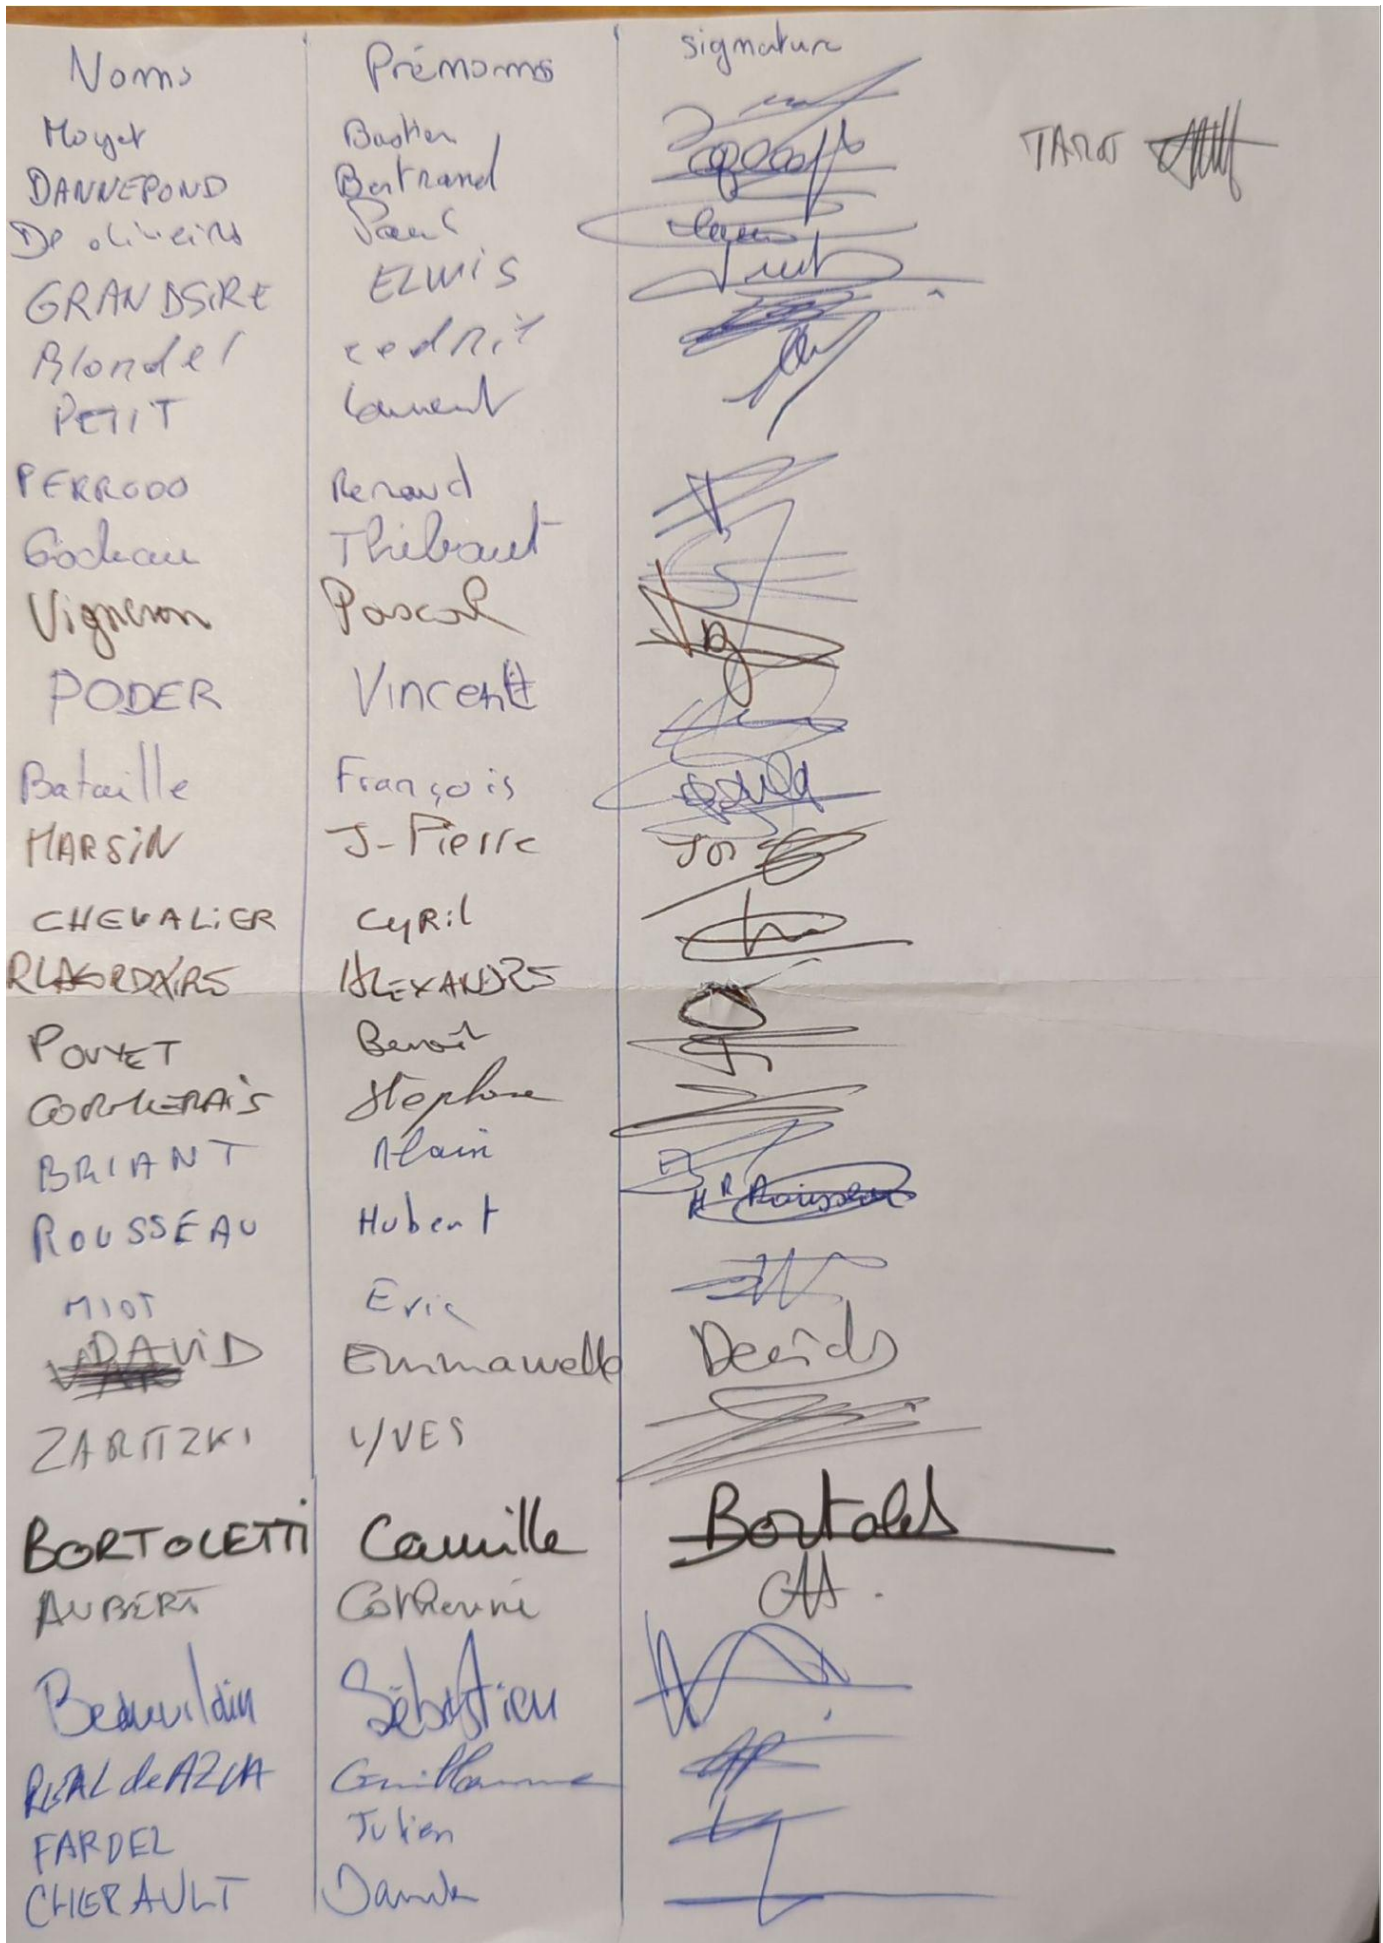 Noms Prénoms signature
Moyet Bastien TAROT
DANNEPOND Bertrand
De oliveira Paul
GRANDSIRE ELWIS
Blondel cedric
PETIT Laurent
PERRODO Renaud
Godeau Thibaut
Vigneron Pascal
PODER Vincent
Bataille François
MARSIN J-Pierre
CHEVALIER CyRil
ALEXANDRE
POUYET Benoit
CORMERAIS Stéphane
BRIANT Alain
ROUSSEAU Hubert HR Rousseau
MIOT Eric
DAVID Emmanuelle David
ZARITZKI YVES
BORTOLETTI Camille Bortoletti
AUBERT Catherine CA
Beauvildin Sébastien
REAL de AZUA Guillaume
FARDEL Julien
CHERAULT